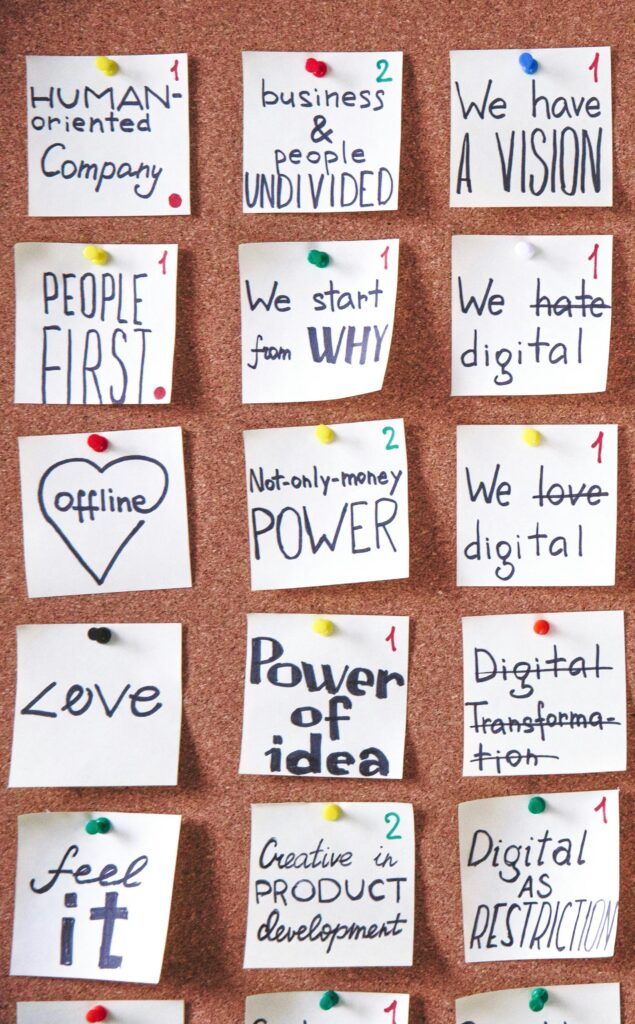 1
HUMAN-
oriented
Company
2
business
&
people
UNDIVIDED
1
We have
A VISION
1
PEOPLE
FIRST
1
We start
from WHY
1
We hate
digital
Offline
2
Not-only-money
POWER
1
We love
digital
Love
1
Power
of
idea
Digital
Transforma-
tion
feel
it
2
Creative in
PRODUCT
development
1
Digital
AS
RESTRICTION
1